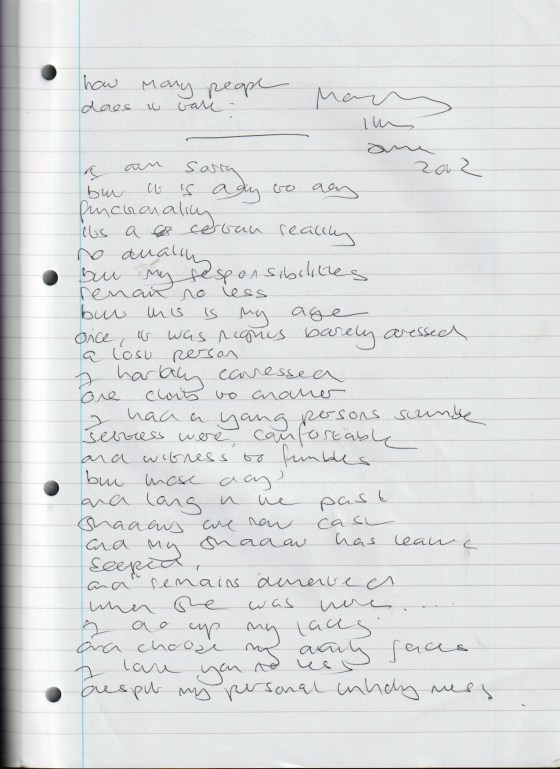 how many people
does it take:
11th
June
2012
I am sorry
but it is a day to day
functionality
its a certain reality
no duality
but my responsibilities
remain no less
but this is my age
once, it was nights barely dressed
a lost person
I hardly caressed
one to another
I had a young persons
were, comfortable
and witness to fumbles
but those days
and long in the past
shadows are now cast
and my shadow has
seeped,
and remains
when she was here....
I do up my laces
and choose my daily faces
I love you no less
despite my personal